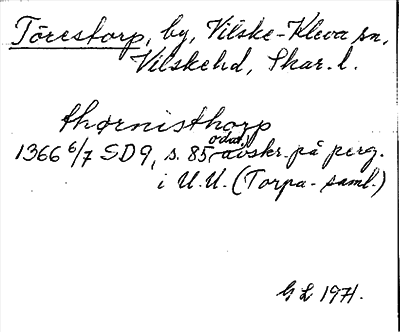 Torestorp, by, Vilske-Kleva sn,
Vilske hd, Skar. l.
thørnisthorp
1366 6/7 SD 9, s. 85, odat. avskr. på perg.
i U.U. (Torpa-saml.)
G L 1971.